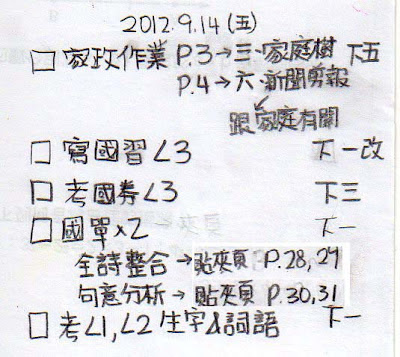 2012.9.14(五)
□ 家政作業 P.3→三、家庭樹 下五
P.4→六、新聞剪報
跟家庭有關
□ 寫國習∠3 下一改
□ 考國券∠3 下三
□ 國單×2 下一
全詩整合→貼夾頁 P.28,29
句意分析→貼夾頁 P.30,31
□ 考∠1,∠2 生字&詞語 下一